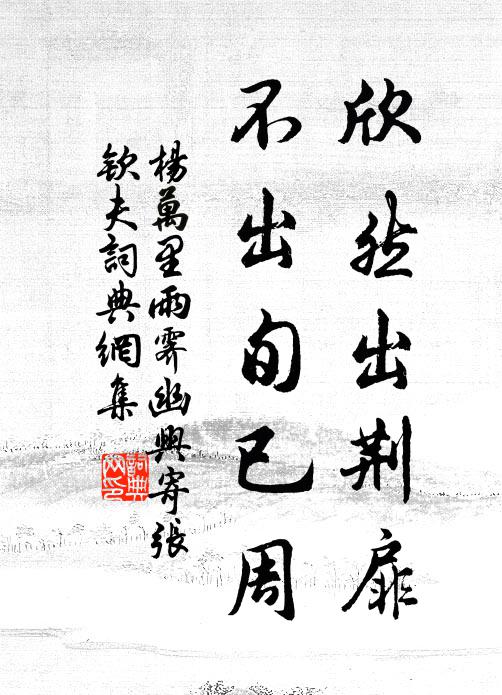 欣然出荆扉
不出旬已周
楊萬里雨霽幽興寄張
欽夫詞典網集
詞典
网印